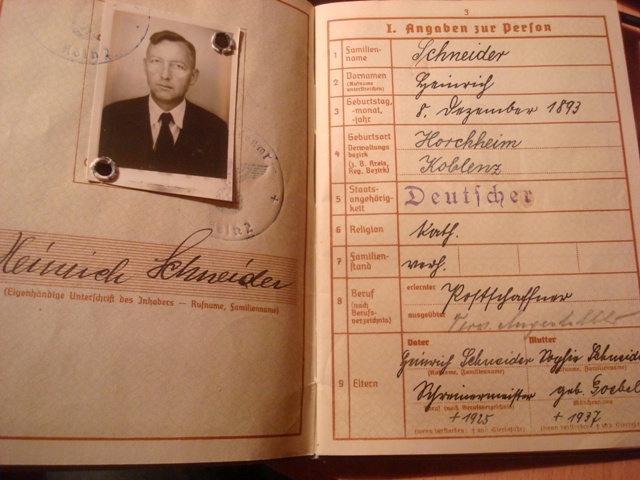 Köln 2
Köln 2
Heinrich Schneider
(Eigenhändige Unterschrift des Inhabers — Rufname, Familienname)
3
I. Angaben zur Person
1 Familien-
name
Schneider
2 Vornamen
(Rufname
unterstreichen)
Heinrich
3 Geburtstag,
-monat,
-jahr
8. Dezember 1893
4 Geburtsort
Verwaltungs
bezirk
(z. B. Kreis,
Reg. Bezirk)
Horchheim
Koblenz
5 Staats-
angehörig-
keit
Deutscher
6 Religion
kath.
7 Familien-
stand
verh.
8 Beruf
(nach
Berufs-
verzeichnis)
erlernter Postschaffner
ausgeübter
9 Eltern
Vater
Heinrich Schneider
(Rufname, Familienname)
Schreinermeister
Beruf (nach Berufsverzeichnis)
+ 1925
Mutter
Sophie Schneid
(Rufname, Familienname)
geb. Goebel
Mädchenname
+ 1937